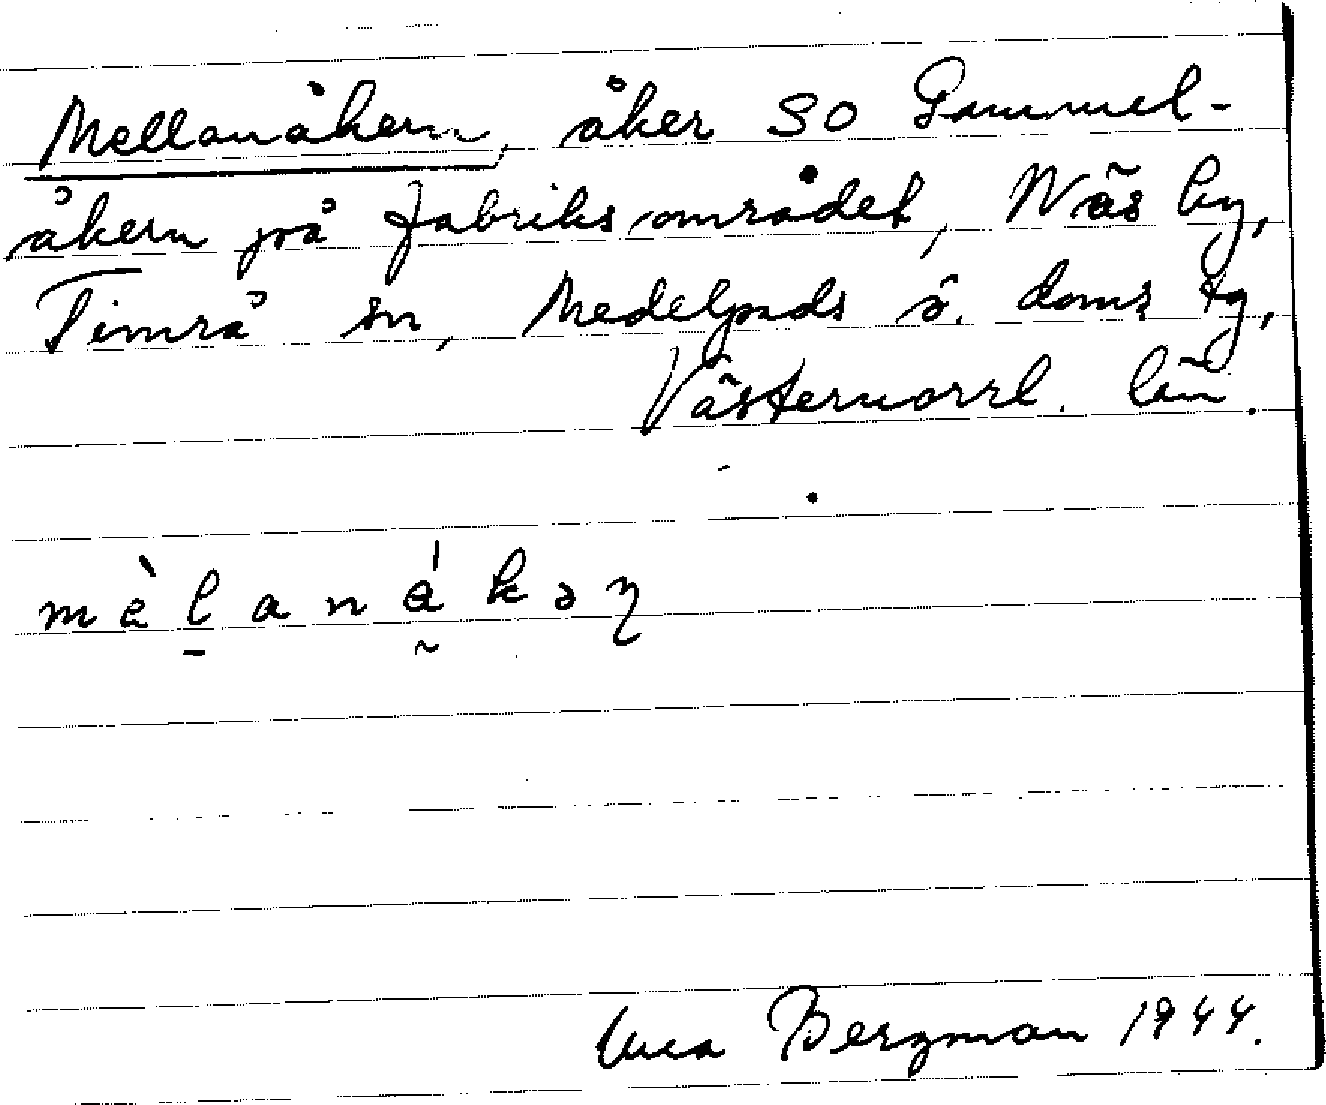 Mellanåkern, åker SO Gammel-
åkern på fabriksområdet, Näs by,
Timrå sn, Medelpads ö. doms tg,
Västernorrl. län.
mèlanákən
Bergman 1944.